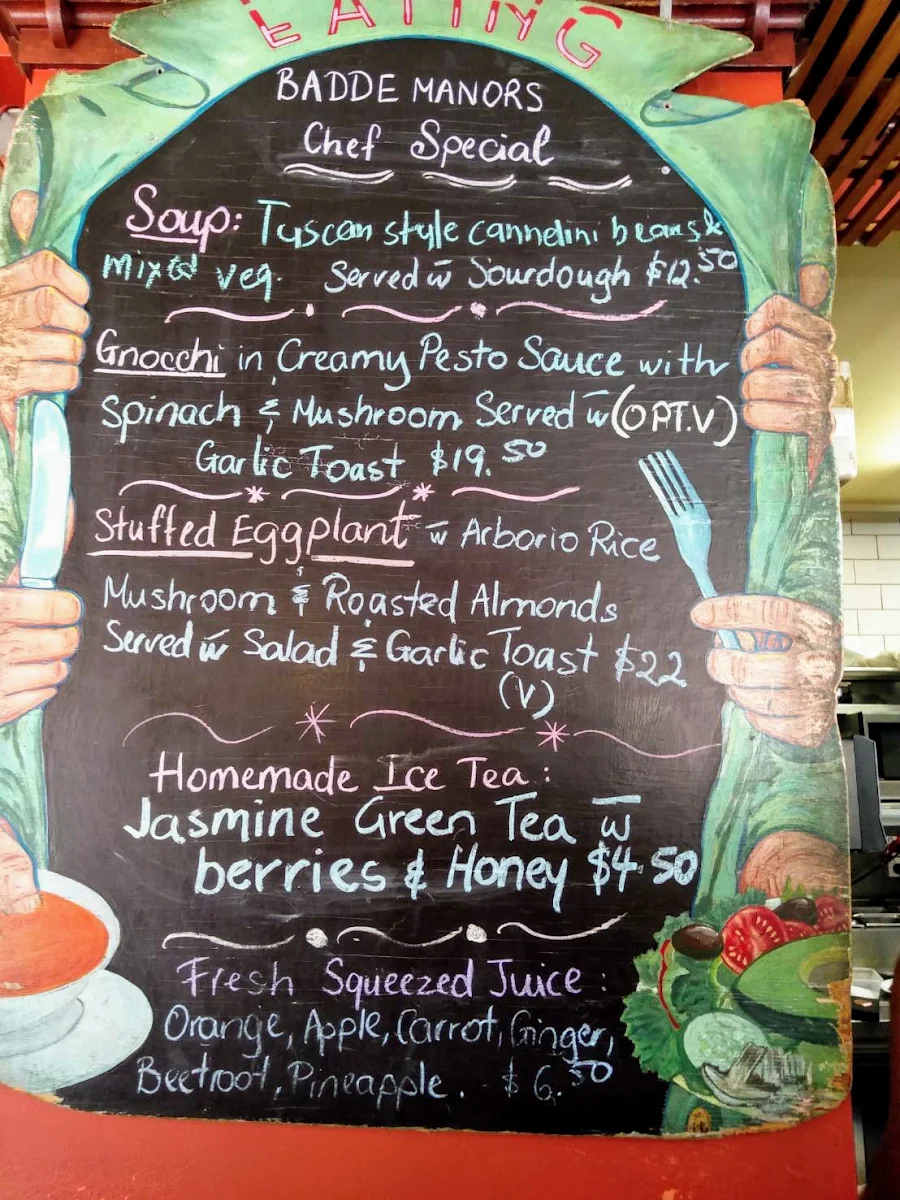 EATING
BADDE MANORS
Chef Special
Soup: Tuscan style cannelini beans &
mixed veg. Served w̄ Sourdough $12.50
Gnocchi in Creamy Pesto Sauce with
Spinach & Mushroom Served w̄ (OPT.V)
Garlic Toast $19.50
Stuffed Eggplant w̄ Arborio Rice
Mushroom & Roasted Almonds
Served w̄ Salad & Garlic Toast $22
(V)
Homemade Ice Tea:
Jasmine Green Tea w̄
berries & Honey $4.50
Fresh Squeezed Juice:
Orange, Apple, Carrot, Ginger,
Beetroot, Pineapple. $6.50